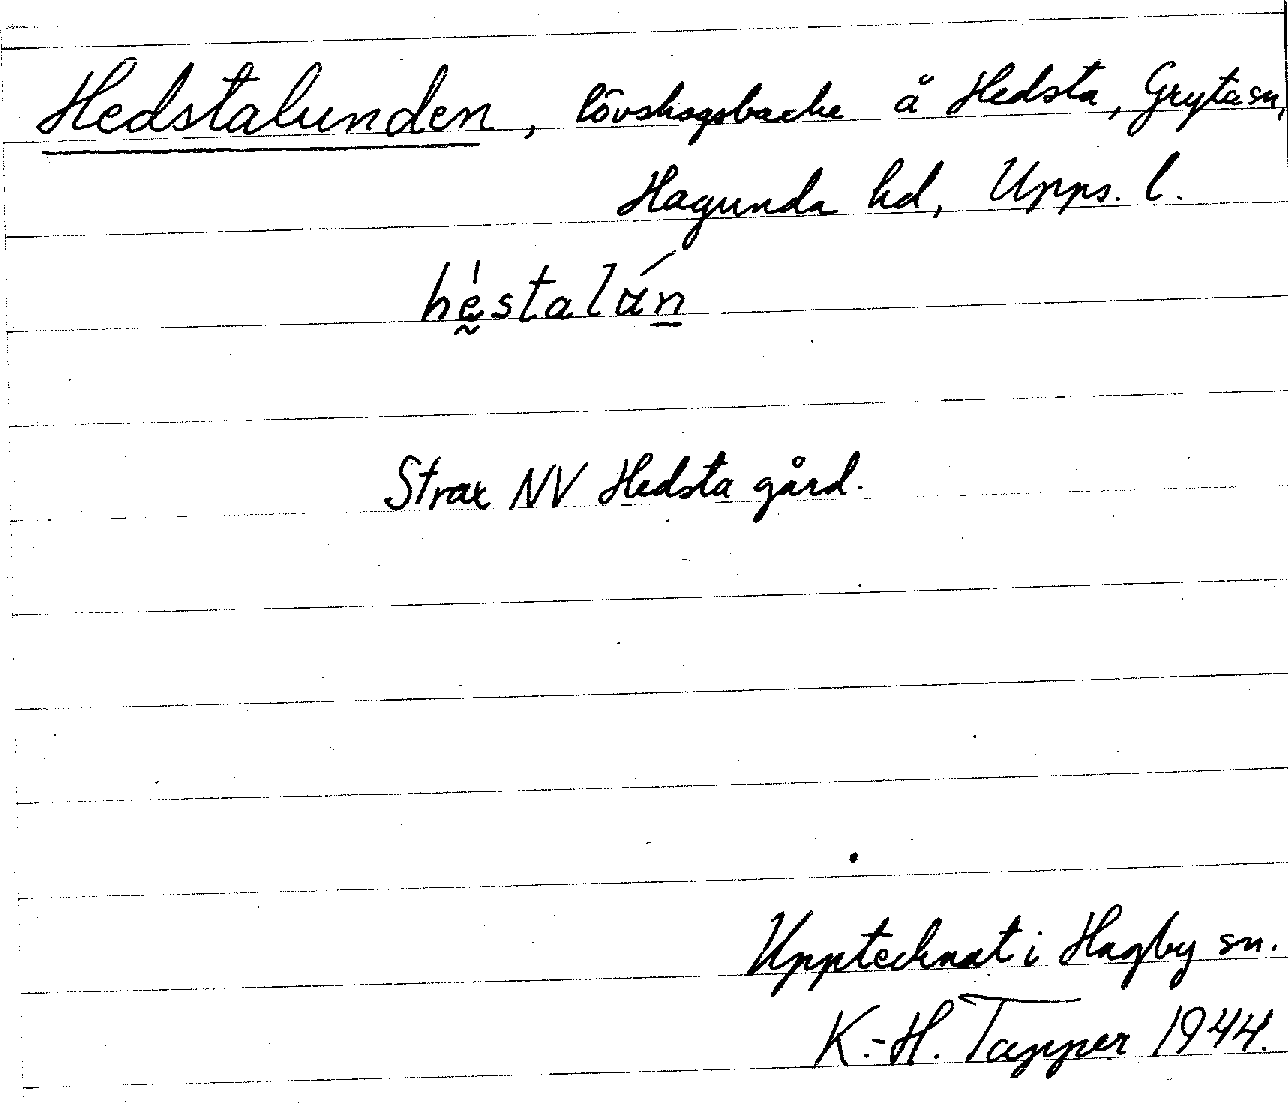 Hedstalunden, lövskogsbacke å Hedsta, Gryta sn,
Hagunda hd, Upps. l.
hė́stalán
Strax NV Hedsta gård.
Upptecknat i Hagby sn.
K.-H. Tapper 1944.